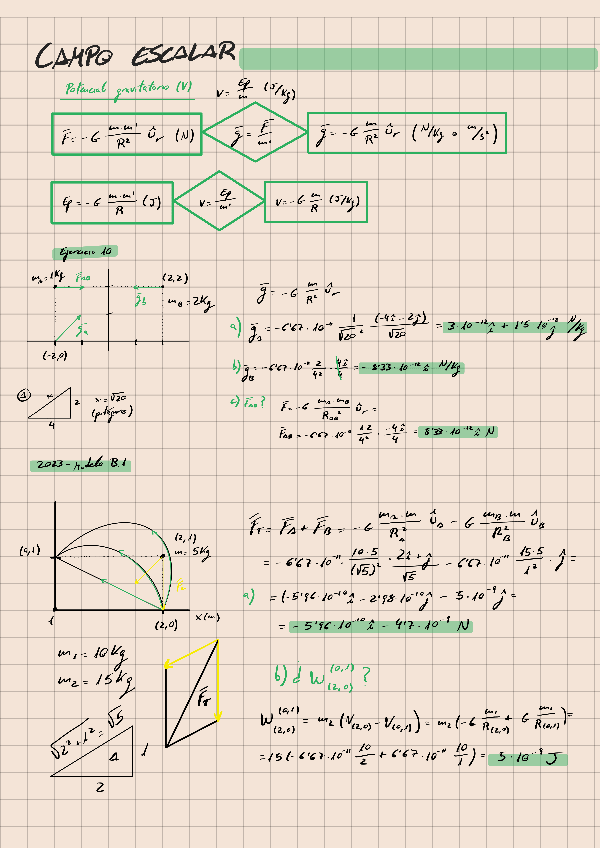 CAMPO ESCALAR
Potencial gravitatorio (V)
V = Ep/m (J/Kg)
F̄ = -G m·m'/R² ûr (N)
ḡ = F̄/m'
ḡ = -G m/R² ûr (N/Kg o m/s²)
Ep = -G m·m'/R (J)
V = Ep/m'
V = -G m/R (J/Kg)
Ejercicio 10
mA = 1Kg
F̄AB
(2,2)
ḡB
mB = 2Kg
ḡA
(-2,0)
ḡ = -G m/R² ûr
a) ḡA = -6'67·10⁻¹¹ 1/√20² · (-4î - 2ĵ)/√20 = 3·10⁻¹² î + 1'5·10⁻¹² ĵ N/Kg
b) ḡB = -6'67·10⁻¹¹ 2/4² · 4î/4 = -8'33·10⁻¹² î N/Kg
c) F̄AB?
F̄ = -G mA·mB/RAB² ûr =
F̄AB = -6'67·10⁻¹¹ 1·2/4² · -4î/4 = 8'33·10⁻¹² î N
Δ
x
2
4
x = √20
(pitágoras)
2023 - Modelo B.1
(0,1)
(2,1)
m = 5Kg
x(m)
(2,0)
F̄T = F̄A + F̄B = -G mA·m/RA² ûA - G mB·m/RB² ûB
= -6'67·10⁻¹¹ 10·5/(√5)² · 2î+ĵ/√5 - 6'67·10⁻¹¹ 15·5/1² ĵ =
a) = (-5'96·10⁻¹⁰ î - 2'98·10⁻¹⁰ ĵ - 5·10⁻⁹ ĵ =
= -5'96·10⁻¹⁰ î - 4'7·10⁻⁹ N
m1 = 10Kg
m2 = 15Kg
F̄T
b) d W(2,0)^(0,1) ?
W(2,0)^(0,1) = m2 (V(2,0) - V(0,1)) = m2 (-G m1/R(2,0) + G m1/R(0,1)) =
= 15 (-6'67·10⁻¹¹ 10/2 + 6'67·10⁻¹¹ 10/1) = 5·10⁻⁹ J
√2²+1² = √5
Δ
1
2